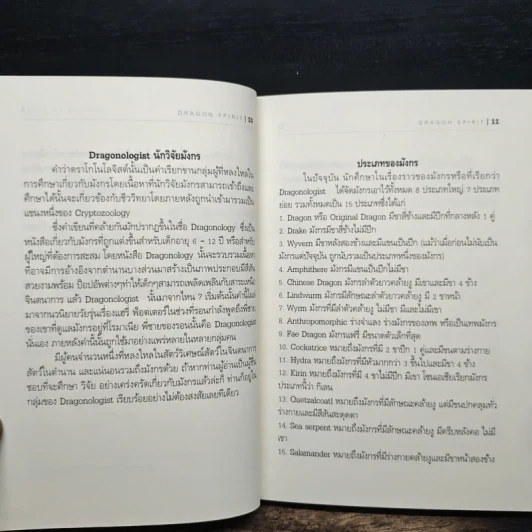 DRAGON SPIRIT | 10
Dragonologist นักวิจัยมังกร
คำว่าดราโกโนโลจิสต์นั้นเป็นคำเรียกขานกลุ่มผู้ที่หลงใหลใน
การศึกษาเกี่ยวกับมังกรโดยเนื้อหาที่นักวิจัยมังกรสามารถเข้าถึงและ
ศึกษาได้นั้นจะเกี่ยวข้องกับชีววิทยาโดยภายหลังถูกนำเข้ามารวมเป็น
แขนงหนึ่งของ Cryptozoology
ซึ่งคำเขียนที่คล้ายกันมักปรากฏขึ้นในชื่อ Dragonology ซึ่งเป็น
หนังสือเกี่ยวกับมังกรที่ถูกแต่งขึ้นสำหรับเด็กอายุ 6 - 12 ปี หรือสำหรับ
ผู้ใหญ่ที่ต้องการสะสม โดยหนังสือ Dragonology นั้นจะรวบรวมเนื้อหา
ที่อาจมีการอ้างอิงจากตำนานบางส่วนมาสร้างเป็นภาพประกอบมีสีสัน
สวยงามพร้อม ป๊อปอัพต่างๆทำให้เด็กๆสามารถเพลิดเพลินกับสาระเหนือ
จินตนาการ แล้ว Dragonologist นั้นมาจากไหน ? เริ่มต้นนั้นคำนี้โผล่
มาจากนวนิยายวัยรุ่นเรื่องแฮรี่ พ็อตเตอร์ในช่วงที่รอนกำลังพูดถึงพี่ชาย
ของเขาที่ดูแลมังกรอยู่ที่โรมาเนีย พี่ชายของรอนนั้นคือ Dragonologist
นั่นเอง ภายหลังคำนี้นั้นถูกใช้มาอย่างแพร่หลายในหลายกลุ่มคน
มีผู้คนจำนวนหนึ่งที่หลงใหลในสัตว์วิเศษณ์สัตว์ในจินตนาการ
สัตว์ในตำนาน และแน่นอนรวมถึงมังกรด้วย ถ้าหากท่านผู้อ่านเป็นผู้ที่ชื่น
ชอบที่จะศึกษา วิจัย อย่างเคร่งครัดเกี่ยวกับมังกรแล้วล่ะก็ ท่านก็อยู่ใน
กลุ่มของ Dragonologist เรียบร้อยอย่างไม่ต้องสงสัยเลยทีเดียว
DRAGON SPIRIT | 11
ประเภทของมังกร
ในปัจจุบัน นักศึกษาในเรื่องราวของมังกรหรือที่เรียกว่า
Dragonologist ได้จัดมังกรเอาไว้ทั้งหมด 8 ประเภทใหญ่ 7 ประเภท
ย่อย รวมทั้งหมดเป็น 15 ประเภทซึ่งได้แก่
1. Dragon หรือ Original Dragon มีขาสี่ข้างและมีปีกที่กลางหลัง 1 คู่
2. Drake มังกรสี่ข้างไม่มีปีก
3. Wyvern มีขาหลังสองข้างและมีแขนเป็นปีก (แม้ว่าเมื่อก่อนไม่นับเป็น
มังกรแต่ปัจจุบัน ถูกนับรวมเป็นประเภทหนึ่งของมังกร)
4. Amphithere มังกรมีแขนเป็นปีกไม่มีขา
5. Chinese Dragon มังกรลำตัวยาวคล้ายงู มีเขาและมีขา 4 ข้าง
6. Lindwurm มังกรมีลักษณะลำตัวยาวคล้ายงู มี 2 ขาหน้า
7. Wyrm มังกรมีลำตัวคล้ายงูใหญ่ ไม่มีขา มีและไม่มีเขา
8. Anthropomorphic ร่างจำแลง ร่างมังกรของเทพ หรือเป็นเทพมังกร
9. Fae Dragon มังกรแฟรี่ มีขนาดตัวเล็กที่สุด
10. Cockatrice หมายถึงมังกรที่มี 2 ขาปีก 1 คู่และมีขนตามร่างกาย
11. Hydra หมายถึงมังกรที่มีหัวมากกว่า 3 ขึ้นไปและมีขา 4 ข้าง
12. Kirin หมายถึงมังกรที่มี 4 ขาไม่มีปีก มีเขา โซนเอเชียเรียกมังกร
ประเภทนี้ว่า กิเลน
13. Quetzalcoatl หมายถึงมังกรที่มีลักษณะคล้ายงู แต่มีขนปกคลุมทั่ว
ร่างกายและมีสีสันสะดุดตา
14. Sea serpent หมายถึงมังกรที่มีลักษณะคล้ายงู มีครีบหลังคอ ไม่มี
เขา
15. Salamander หมายถึงมังกรที่มีร่างกายคล้ายงูและมีขาหน้าสองข้าง